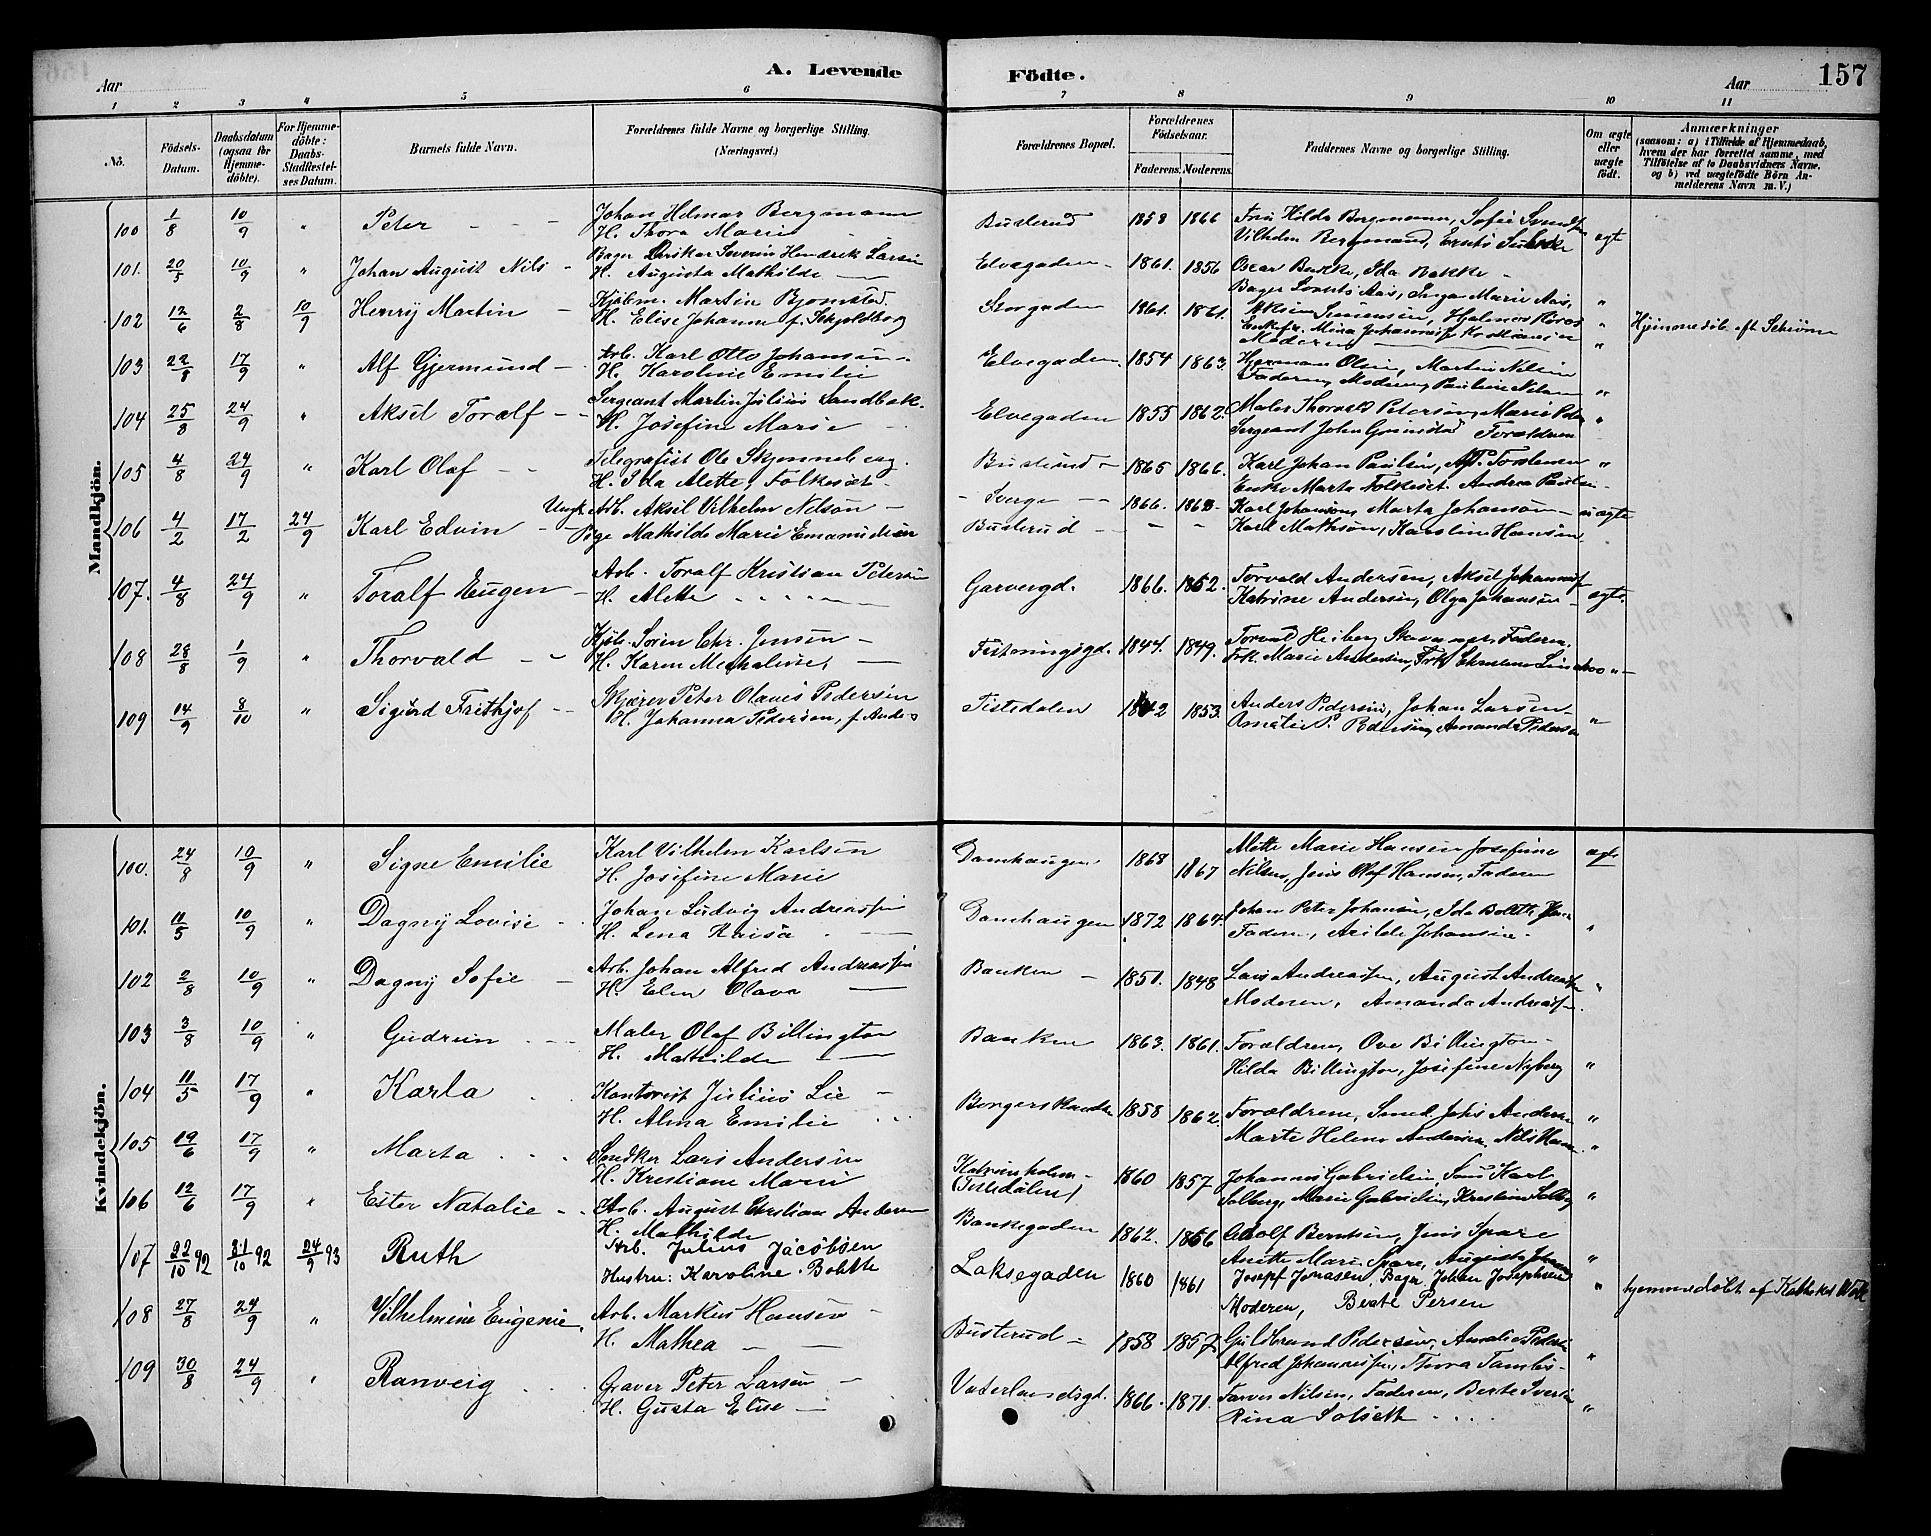 157
Aar
A. Levende Födte.
Aar
1 2 3 4 5 6 7 8 9 10 11
No.
Födsels-Datum.
Daabsdatum (ogsaa for Hjemme-döbte).
For Hjemme-döbte: Daabs-Stadfæstel-ses Datum.
Barnets fulde Navn.
Forældrenes fulde Navne og borgerlige Stilling.
(Næringsvei.)
Forældrenes Bopæl.
Forældrenes Födselsaar.
Faderens. Moderens.
Faddernes Navne og borgerlige Stilling.
Om ægte eller uægte födt.
Anmærkninger
(saasom: a) i Tilfælde af Hjemmedaab,
hvem der har forrettet samme, med
Tilföielse af to Daabsvidners Navne.
og b) ved uægtefödte Börn An-
melderens Navn m. V.)
Mandkjön.
100 1/8 10/9 " Peter - - Johan Helmar Bergmann Busterud 1858 1866 Fru Hilda Bergmann, Sofie
H. Thora Marie Vilhelm Bergmand, ægt
101. 20/5 10/9 " Johan August Nils - Bager Severin Hendrik Larsen Elvegaden - 1861. 1856 Oscar Bakke, Ida Bakke -
H. Augusta Mathilde — Bager Aas, Inga Marie Aas, "
102 12/6 2/8 10/9 Henry Martin - Kjöbm. Martin Bjornstad Storgaden 1861. 1861.
H. Elise Johanne f. Skjoldborg Enkefr. Mina Kristiansen " Hjemmedöb. af Schrøme
103 22/8 17/9 " Alf Gjermund - Arb. Karl Otto Johansen - Elvegaden. 1854 1863. Moderen "
H. Karoline Emilie Herman Olsen, Martin Nilsen
104 25/8 24/9 " Aksel Toralf - - Sergeant Martin Julius Sandbak. Elvegaden 1855 1862. Faderen, Moderen, Pauline Nilsen "
H. Josefine Marie Maler Thorvald Petersen, Marie "
105 4/8 24/9 " Karl Olaf - - Telegrafist Ole Skjenneberg. Busterud - 1865 1866. Sergeant John Grimstad Forældrene
H. Ida Alette, Folkeset - Karl Johan Paulsen, "
106 4/2 17/2 24/9 Karl Edvin - - Ungk. Arb. Aksel Vilhelm Nelson - - Sverge - - 1866. 1863. Enke Marta Folkeset. Andrea Paulsen
Pige Mathilde Marie Emanuelsen Busterud - - - Karl Johansen, Marta Johanson - uægte
Karl Mathson, Karoline Hansen
107. 4/8 24/9 " Toralf Eugen - Arb. Toralf Kristian Petersen Garvergd. 1866. 1852. Torvald Andersen, Aksel
H. Alette — Katrine Andersen, Olga Johansen - ægte.
108 28/8 1/9 " Thorvald - - Kjöb. Sören Chr. Jensen - Festningsgd. 1844. 1849. Torvald Heiberg Faderen,
H. Karen Mechaline, — Frk. Marie Andersen, Frk. "
109 14/9 8/10 " Sigurd Frithjof - - Skjærer Peter Olaves Pedersen Tistedalen 1842 1853. Anders Pedersen, Johan Larsen
H. Johanna Pedersen, f. Anders Amalie P. Pedersen, Amanda Pedersen "
Kvindekjön.
100. 24/8 10/9 " Signe Emilie Karl Vilhelm Karlsen Damhaugen 1868 1867 Mette Marie Hansen Josefine ægte
H. Josefine Marie Nilsen, Jens Olaf Hansen, Faderen
101. 11/5 10/9 " Dagny Lovise - - Johan Ludvig Andreassen Damhaugen 1872 1864. Johan Peter Johansen, Ida Bolette
H. Lena Raisa — Faderen, Johansen - "
102 2/8 10/9 " Dagny Sofie - Arb. Johan Alfred Andreassen Banken - 1851. 1848 Lars Andreassen, August Andreassen
H. Elen Olava — Moderen, Amanda Andreassen. "
103 3/8 10/9 " Gudrun - - - Maler Olaf Billington Banken 1863. 1861. Forældrene, Ove Billington -
H. Mathilde — Hilda Billington, Josefine Nyberg "
104 11/5 17/9 " Karla Kontorist Julius Lie - Borgerskandsen 1858 1862. Forældrene, Smed Johs Andersen "
H. Alma Emilie Marte Helene Andersen, Nils Hansen. "
105 19/6 17/9 " Marta Snedker Lars Andersen Katrineholm - (Tistedalen) 1860 1857 Johannes Gabrielsen, Karl
H. Kristiane Marie Solberg, Marie Gabrielsen, Kristine Solberg "
106 12/6 17/9 " Ester Natalie - - Arb. August Christian Andersen Bankegaden 1862. 1866 Adolf Berntsen, Jens Spare
H. Mathilde Anette Marie Spare, Augusta "
107 22/10 92 31/10 92 24/9 93 Ruth Arb. Julius Jacobsen Laksegaden 1860 1861 Josepf Jonasen, Bager Johan Josephsen
Hustru: Karoline Bolette Moderen, Beate Persen " hjemmedöbt af
108 27/8 24/9 " Vilhelmine Eugenie. Arb. Markus Hansen - Busterud - 1858 1857 Gulbrand Pedersen, Amalie Pedersen
H. Mathea - - Alfred Johannessen, Thora "
109 30/8 24/9 " Ranveig Graver Peter Larsen - Vaterlandsgd. 1866. 1871. Nilsen, Faderen, Berte
H. Gusta Elise - Rina "